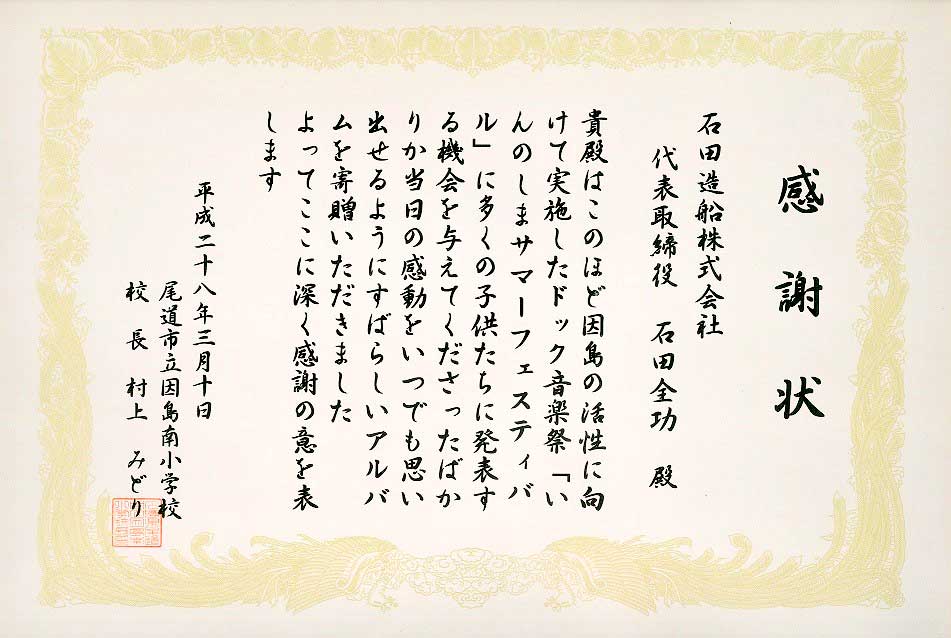 感謝状
石田造船株式会社
代表取締役 石田全功 殿
貴殿はこのほど因島の活性に向
けて実施したドック音楽祭「い
んのしまサマーフェスティバ
ル」に多くの子供たちに発表す
る機会を与えてくださったばか
りか当日の感動をいつでも思い
出せるようにすばらしいアルバ
ムを寄贈いただきました
よってここに深く感謝の意を表
します
平成二十八年三月十日
尾道市立因島南小学校
校長 村上 みどり